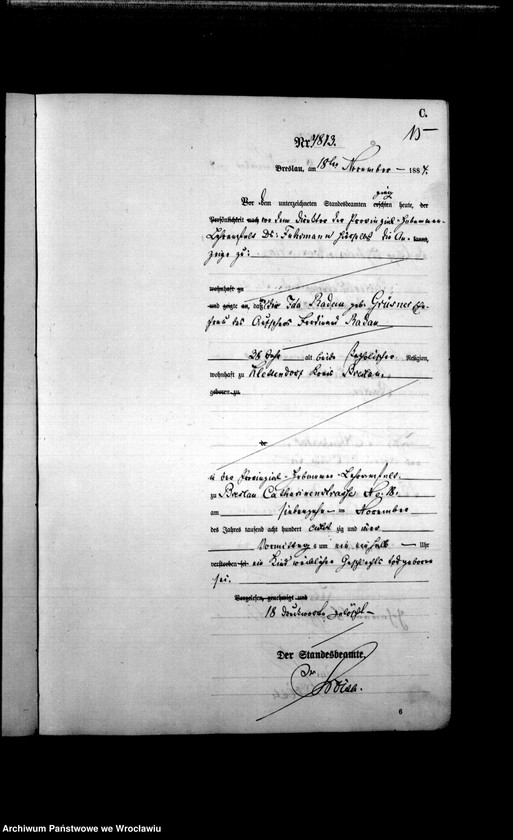 C.
15
Nr. 4813.
Breslau, am 18ten November 1884.
Vor dem unterzeichneten Standesbeamten erschien heute, der
ging
Persönlichkeit nach von dem Direktor der Provinzial-Hebammen-
Lehranstalt Dr: Fuhrmann hierselbst die An- kannt,
zeige zu:
wohnhaft zu
und zeigte an, daß die Ida Radau geb. Grüsner Ehe-
frau des Ferdinand Radau
28 Jahr alt beide katholischer Religion,
wohnhaft zu Klettendorf Kreis Breslau,
geboren zu
der
in der Provinzial-Hebammen-Lehranstalt
zu Breslau Catharinenstrasse No 18.
am siebzehn ten November
des Jahres tausend acht hundert acht zig und vier
Vormittags um ein einhalb Uhr
verstorben sei ein Kind weiblichen Geschlechts todtgeboren
sei.
Vorgelesen, genehmigt und
18 Druckworte gelöscht
Der Standesbeamte.
6
Archiwum Państwowe we Wrocławiu